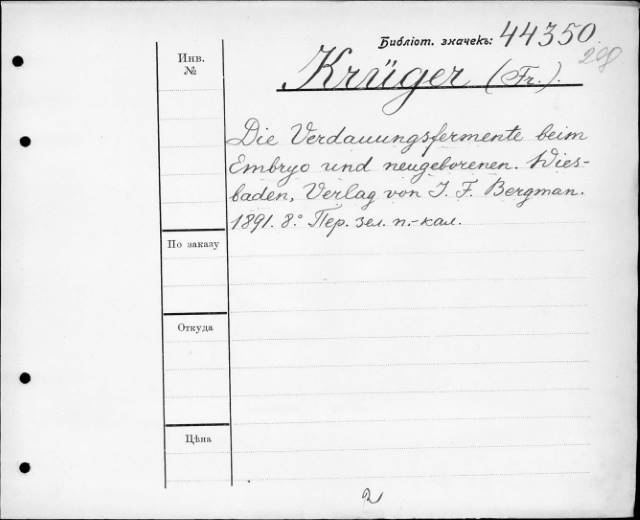 Библіот. значекъ: 44350.
Инв.
№
Krüger (Fr.).
Die Verdauungsfermente beim
Embryo und neugeborenen. Wies-
baden, Verlag von J. F. Bergman.
1891. 8.° Пер. зел. п.-кал.
По заказу
Откуда
Цѣна
2